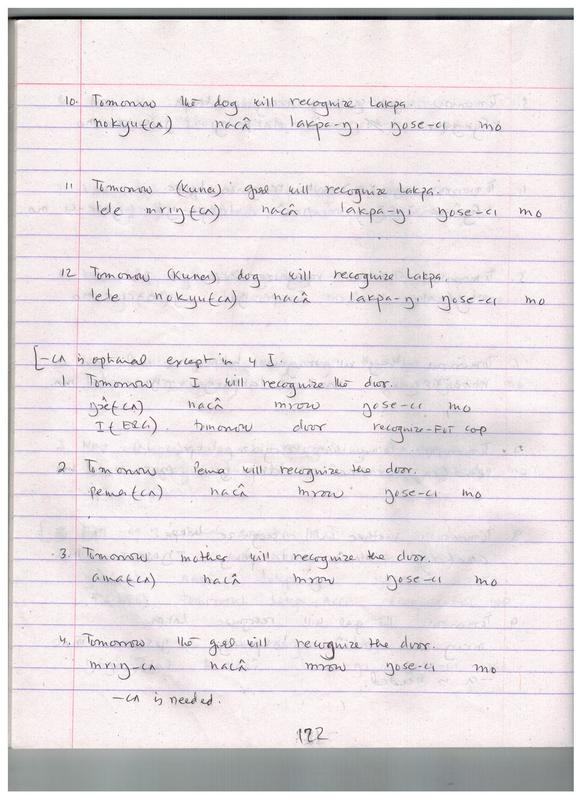 10. Tomorrow the dog will recognize Lakpa.
nokyu(cʌ) nacâ lakpa-ŋi ŋose-cɪ mo
11 Tomorrow (Kunes) girl will recognize Lakpa.
lele mrɪŋ(cʌ) nacâ lakpa-ŋi ŋose-cɪ mo
12 Tomorrow (Kunes) dog will recognize Lakpa.
lele nokyu(cʌ) nacâ lakpa-ŋi ŋose-cɪ mo
[-cʌ is optional except in 4 I.
1. Tomorrow I will recognize the door.
(cʌ) nacâ mrow ŋose-cɪ mo
I(ERG) tomorrow door recognize-FUT cop
2. Tomorrow Pema will recognize the door.
pema(cʌ) nacâ mrow ŋose-cɪ mo
3. Tomorrow mother will recognize the door.
ama(cʌ) nacâ mrow ŋose-cɪ mo
4. Tomorrow the girl will recognize the door.
mrɪŋ-cʌ nacâ mrow ŋose-cɪ mo
-cʌ is needed.
122